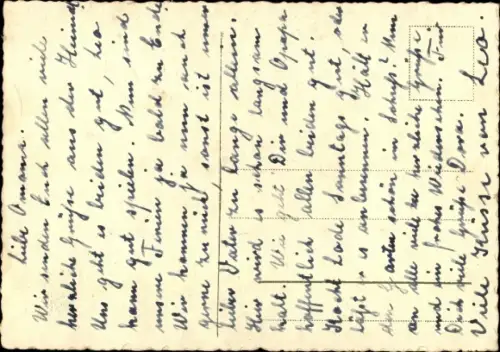 Liebe Omama.
Wir senden Euch allen viele
herzliche Grüße aus der Heimat.
Uns geht es beiden gut, Lia
kann gut spielen. Nun sind
unsere Ferien ja bald zu Ende.
Wir kommen ja nun auch
gerne zurück sonst ist unser
lieber Vater zu lange allein.
Hier wird es schon langsam
kalt. Wie geht Dir und Opapa
hoffentlich allen beiden gut.
Kocht Sonntags gut, oder
läßt es anbrennen. Hält in
den Garten schön im Nun
an alle viele herzliche Grüße
und ein frohes Wiedersehen. Für
Dich viele Grüße Dora.
Viele Küsse von Lia.